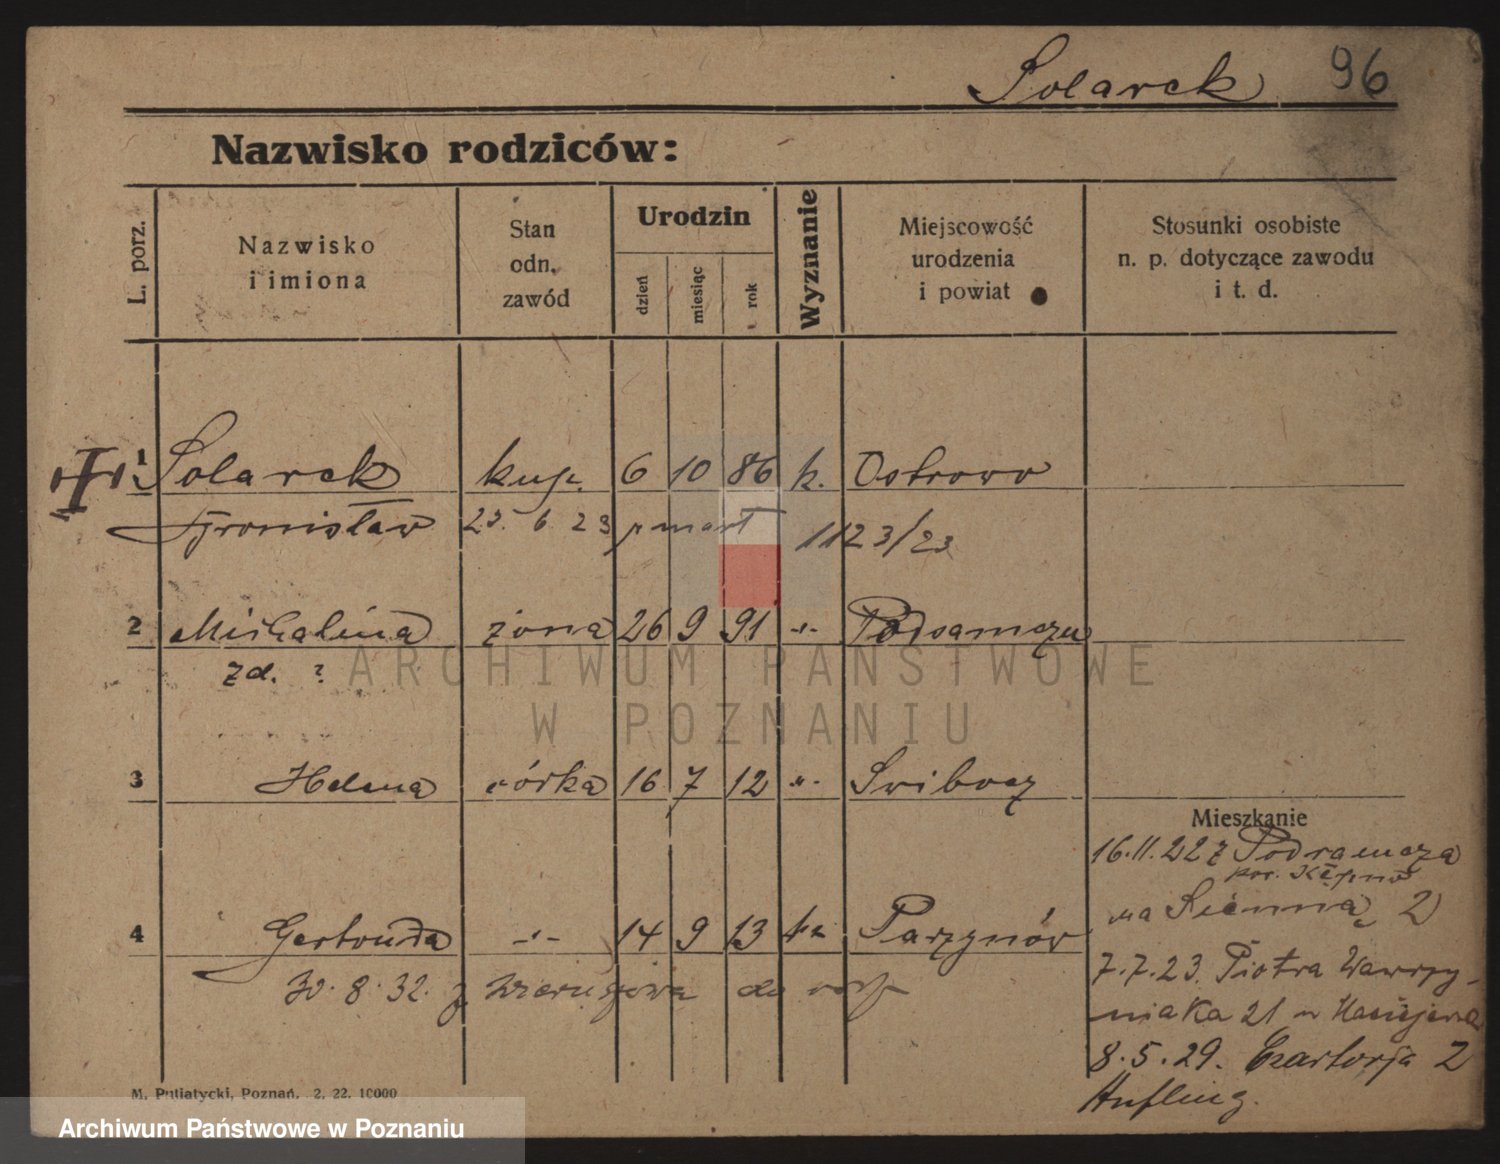 Solarek 96
Nazwisko rodziców:
L. porz.
Nazwisko
i imiona
Stan
odn.
zawód
Urodzin
dzień
miesiąc
rok
Wyznanie
Miejscowość
urodzenia
i powiat
Stosunki osobiste
n. p. dotyczące zawodu
i t. d.
1 Solarek kup. 6 10 86 k. Ostrowo
Bronisław 25. 6. 23 zmart 1123/23
2 Michalina żona 26 9 91 -"- Podsamcze
zd. ?
ARCHIWUM PAŃSTWOWE
W POZNANIU
3 Helena córka 16 7 12 -"- Swibocz
Mieszkanie
16.11.22 z Podzamcza
pow. Kępno
na Sienną 2
4 Gertruda -"- 14 9 13 Parzynów
30.8.32. z Wieruszowa do
7.7.23. Piotra Wawrzy-
niaka 21
8.5.29. Czartorja 2
M. Putiatycki, Poznań. 2. 22. 10000
Archiwum Państwowe w Poznaniu